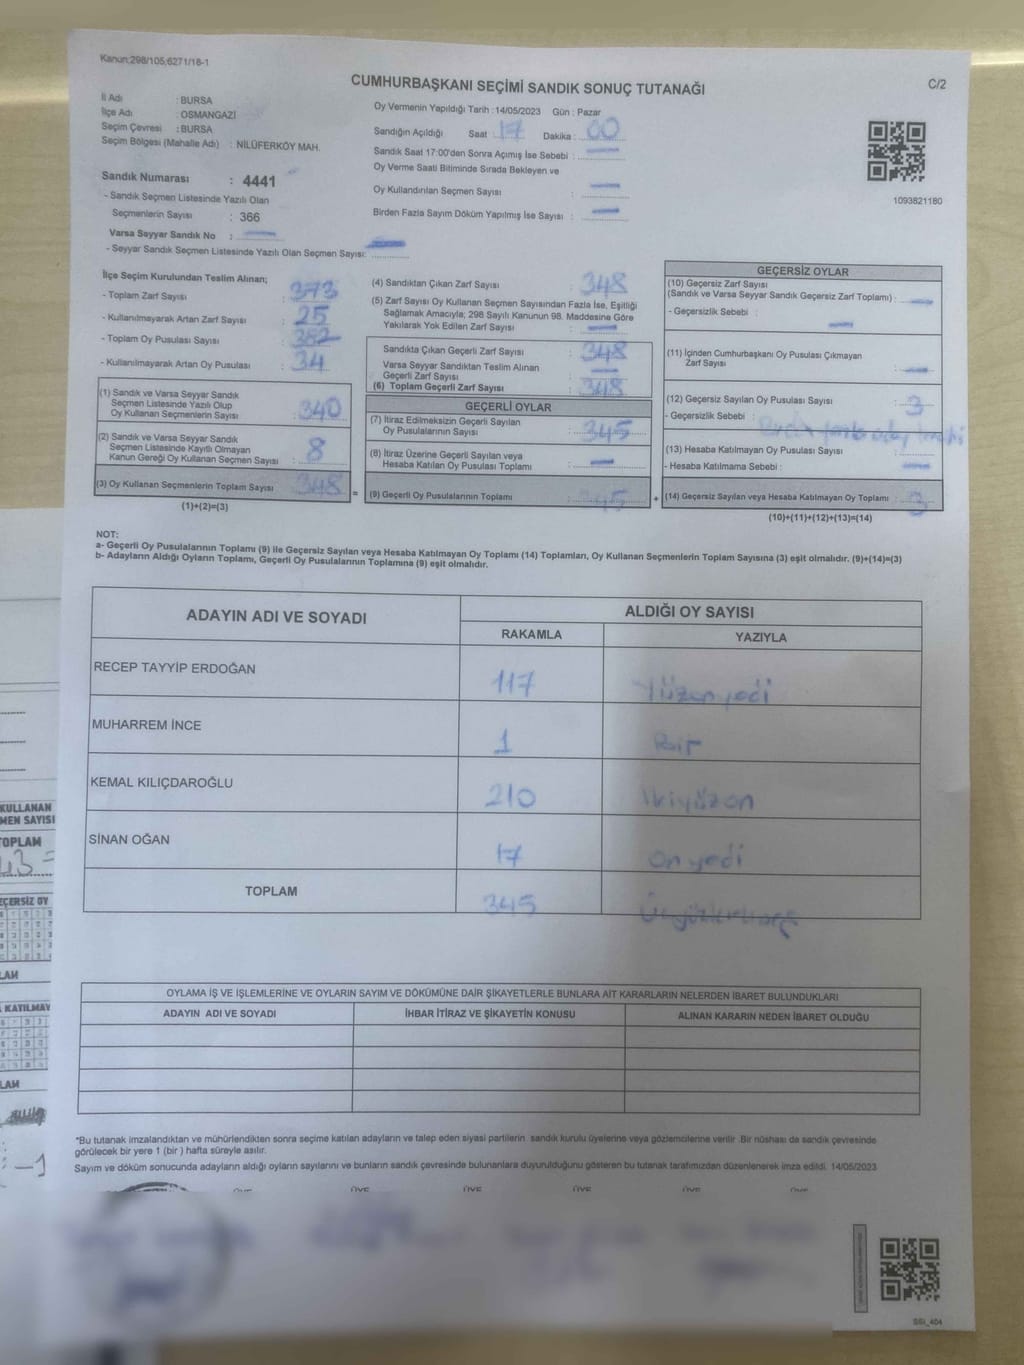 Kanun:298/105;6271/18-1
CUMHURBAŞKANI SEÇİMİ SANDIK SONUÇ TUTANAĞI
C/2
İl Adı : BURSA
İlçe Adı : OSMANGAZİ
Seçim Çevresi : BURSA
Seçim Bölgesi (Mahalle Adı) : NİLÜFERKÖY MAH.
Sandık Numarası : 4441
- Sandık Seçmen Listesinde Yazılı Olan
Seçmenlerin Sayısı : 366
Varsa Seyyar Sandık No :
- Seyyar Sandık Seçmen Listesinde Yazılı Olan Seçmen Sayısı:
Oy Vermenin Yapıldığı Tarih : 14/05/2023 Gün : Pazar
Sandığın Açıldığı Saat : 17 Dakika : 00
Sandık Saat 17:00'den Sonra Açımış İse Sebebi :
Oy Verme Saati Bitiminde Sırada Bekleyen ve
Oy Kullandırılan Seçmen Sayısı :
Birden Fazla Sayım Döküm Yapılmış İse Sayısı :
1093821180
İlçe Seçim Kurulundan Teslim Alınan;
- Toplam Zarf Sayısı : 373
- Kullanılmayarak Artan Zarf Sayısı : 25
- Toplam Oy Pusulası Sayısı : 382
- Kullanılmayarak Artan Oy Pusulası : 34
(1) Sandık ve Varsa Seyyar Sandık
Seçmen Listesinde Yazılı Olup
Oy Kullanan Seçmenlerin Sayısı : 340
(2) Sandık ve Varsa Seyyar Sandık
Seçmen Listesinde Kayıtlı Olmayan
Kanun Gereği Oy Kullanan Seçmen Sayısı : 8
(3) Oy Kullanan Seçmenlerin Toplam Sayısı : 348
(1)+(2)=(3)
(4) Sandıktan Çıkan Zarf Sayısı : 348
(5) Zarf Sayısı Oy Kullanan Seçmen Sayısından Fazla İse, Eşitliği
Sağlamak Amacıyla; 298 Sayılı Kanunun 98. Maddesine Göre
Yakılarak Yok Edilen Zarf Sayısı :
Sandıkta Çıkan Geçerli Zarf Sayısı : 348
Varsa Seyyar Sandıktan Teslim Alınan
Geçerli Zarf Sayısı :
(6) Toplam Geçerli Zarf Sayısı : 348
GEÇERLİ OYLAR
(7) İtiraz Edilmeksizin Geçerli Sayılan
Oy Pusulalarının Sayısı : 345
(8) İtiraz Üzerine Geçerli Sayılan veya
Hesaba Katılan Oy Pusulası Toplamı :
= (9) Geçerli Oy Pusulalarının Toplamı : 345 +
GEÇERSİZ OYLAR
(10) Geçersiz Zarf Sayısı
(Sandık ve Varsa Seyyar Sandık Geçersiz Zarf Toplamı) :
- Geçersizlik Sebebi :
(11) İçinden Cumhurbaşkanı Oy Pusulası Çıkmayan
Zarf Sayısı :
(12) Geçersiz Sayılan Oy Pusulası Sayısı : 3
- Geçersizlik Sebebi : Birden fazla aday
(13) Hesaba Katılmayan Oy Pusulası Sayısı :
- Hesaba Katılmama Sebebi :
(14) Geçersiz Sayılan veya Hesaba Katılmayan Oy Toplamı : 3
(10)+(11)+(12)+(13)=(14)
NOT:
a- Geçerli Oy Pusulalarının Toplamı (9) ile Geçersiz Sayılan veya Hesaba Katılmayan Oy Toplamı (14) Toplamları, Oy Kullanan Seçmenlerin Toplam Sayısına (3) eşit olmalıdır. (9)+(14)=(3)
b- Adayların Aldığı Oyların Toplamı, Geçerli Oy Pusulalarının Toplamına (9) eşit olmalıdır.
ADAYIN ADI VE SOYADI ALDIĞI OY SAYISI
RAKAMLA YAZIYLA
RECEP TAYYİP ERDOĞAN 117 Yüzonyedi
MUHARREM İNCE 1 Bir
KEMAL KILIÇDAROĞLU 210 İkiyüzon
SİNAN OĞAN 17 Onyedi
TOPLAM 345 Üçyüzkırkbeş
OYLAMA İŞ VE İŞLEMLERİNE VE OYLARIN SAYIM VE DÖKÜMÜNE DAİR ŞİKAYETLERLE BUNLARA AİT KARARLARIN NELERDEN İBARET BULUNDUKLARI
ADAYIN ADI VE SOYADI İHBAR İTİRAZ VE ŞİKAYETİN KONUSU ALINAN KARARIN NEDEN İBARET OLDUĞU
*Bu tutanak imzalandıktan ve mühürlendikten sonra seçime katılan adayların ve talep eden siyasi partilerin sandık kurulu üyelerine veya gözlemcilerine verilir. Bir nüshası da sandık çevresinde
görülecek bir yere 1 (bir) hafta süreyle asılır.
Sayım ve döküm sonucunda adayların aldığı oyların sayılarını ve bunların sandık çevresinde bulunanlara duyurulduğunu gösteren bu tutanak tarafımızdan düzenlenerek imza edildi. 14/05/2023
ÜYE ÜYE ÜYE ÜYE ÜYE ÜYE
SSİ_404
KULLANAN
MEN SAYISI
TOPLAM
EÇERSİZ OY
LAM
KATILMAY
LAM